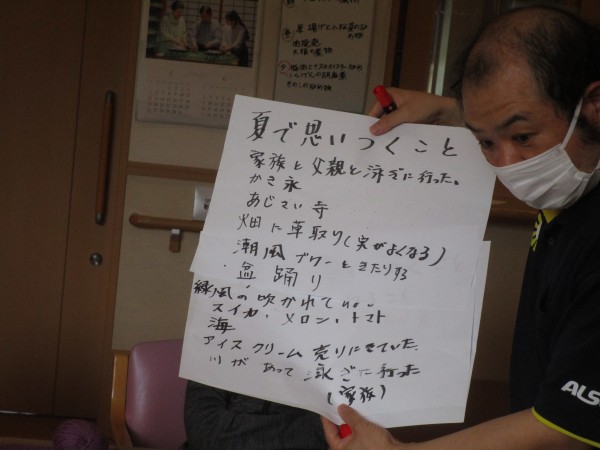 昼 揚げと小松菜の
夏で思いつくこと
家族と父親と泳ぎに行った。
かき氷
あじさい寺
畑に草取り(実がよくなる)
潮風ブワーときたりする
・盆踊り
緑風の吹かれて
スイカ・メロン・トマト
海
アイスクリーム売りにきていた
川があって泳ぎに行った
(家族)
ALS